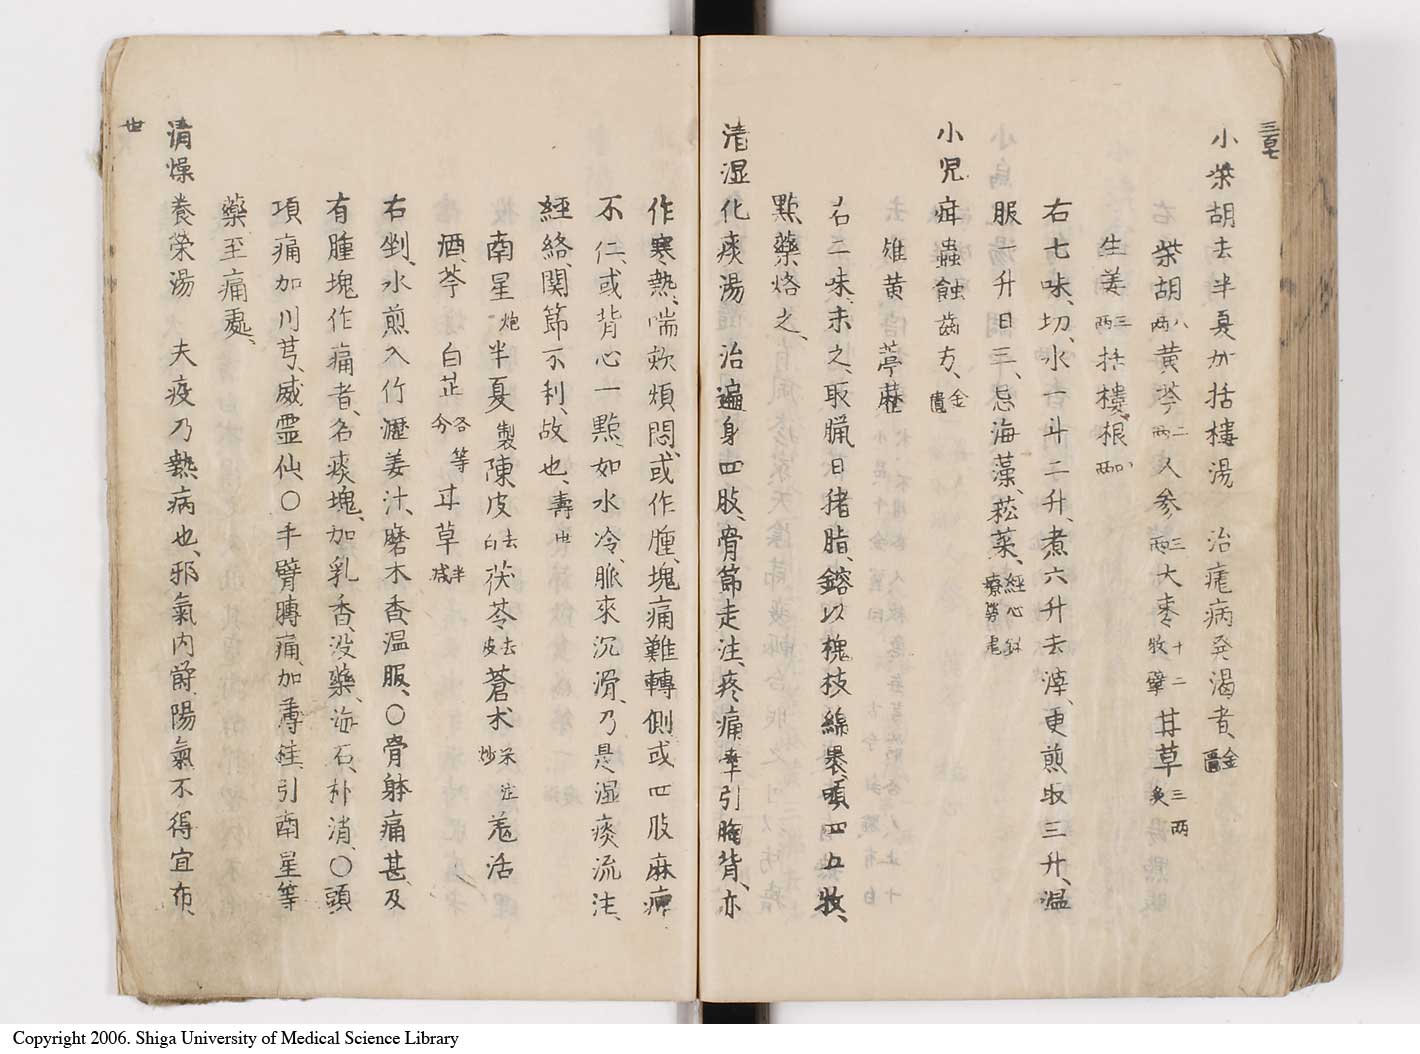 三百七
小柴胡去半夏加括樓湯 治瘧病発渇者、金匱
柴胡八両 黄芩二両 人參三両 大枣十二牧擘 甘草三両炙
生姜三両 括樓根四両
右七味、切、水一斗二升、煮六升去滓、更煎取三升、温
服一升日三、忌海藻、菘菜、經心録療勞瘧
小児疳蟲蝕齒方、金匱
雄黄 葶藶
右二味、末之、取臘日猪脂、鎔以槐枝綿裹頭四五牧、
點藥烙之、
清湿化痰湯 治遍身四肢、骨節走注、疼痛牽引胸背、亦
作寒熱、喘欬煩悶、或作腫塊痛難轉側或四肢麻痺
不仁、或背心一點、如水冷、脈來沉滑、乃是湿痰流注、
經絡、関節不利、故也、壽世
南星炮 半夏製 陳皮去白 茯苓去皮 蒼朮米泔炒 羗活
酒芩 白芷各等分 甘草減半
右剉、水煎入竹瀝姜汁、磨木香温服、〇骨躰痛甚、及
有腫塊作痛者、名痰塊、加乳香、没藥、海石、朴消、〇頭
項痛加川芎、威霊仙、〇手臂膊痛、加薄桂、引南星等
藥至痛處、
清燥養荣湯 夫疫乃熱病也、邪氣内欝、陽氣不得宣布、
世